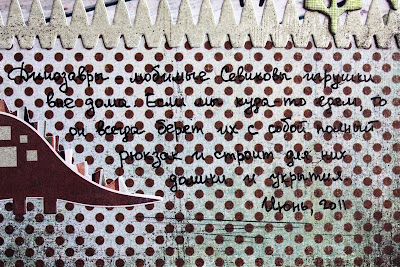 Динозавры - любимые Севиковы игрушки
вне дома. Если мы куда-то едем, то
он всегда берет их с собой полный
рюкзак и строит для них
домики и укрытия.
Июнь, 2011